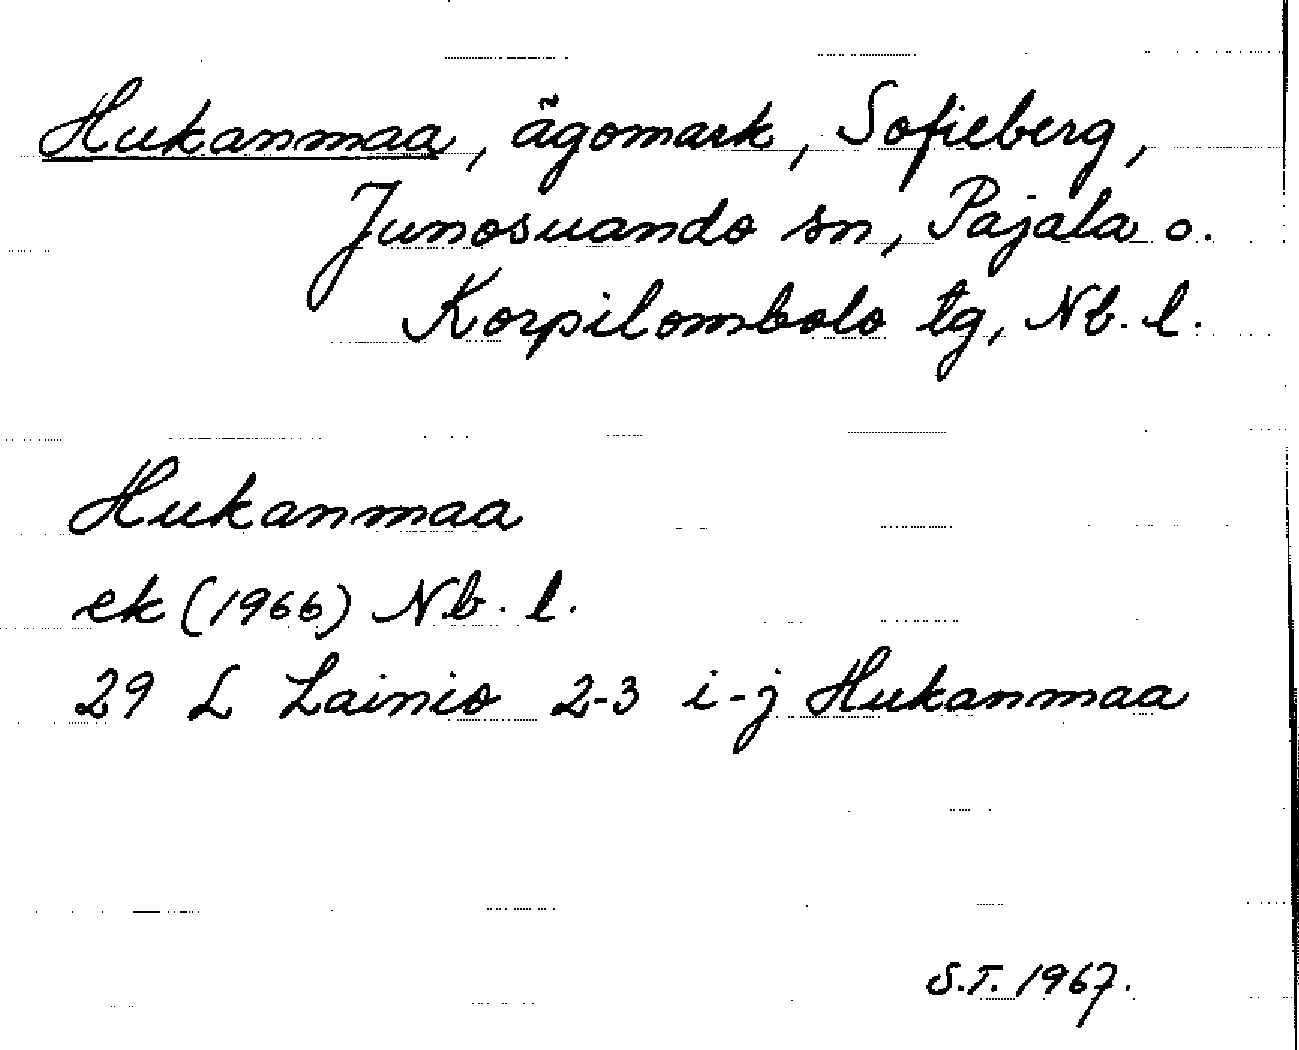 Hukanmaa, ägomark, Sofieberg,
Junosuando sn, Pajala o.
Korpilombolo tg, Nb. l.
Hukanmaa
ek (1966) Nb. l.
29 L Lainio 2-3 i-j Hukanmaa
S.T. 1967.